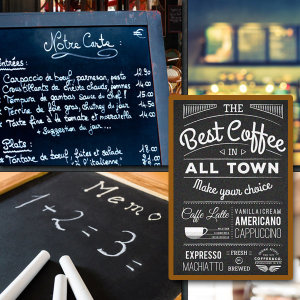 Notre Carte:
€
Entrées:
Carpaccio de bœuf, parmesan, pesto 12.90
Croustillants de chèvre chauds, pommes
Tampura de gambas sauce du chef
Terrine de foie gras, chutney de figues
Tarte fine à la tomate et mozzarella
Suggestion du jour...
Plats:
Tartare de bœuf, frites et salade
"à l'italienne"
Memo
1+2=3
THE
Best Coffee
IN
ALL TOWN
Make your choice
Caffe Latte
VANILLA ICREAM
AMERICANO
CAPPUCCINO
ESPRESSO
MACHIATTO
FRESH
BREWED
COFFEE CO.